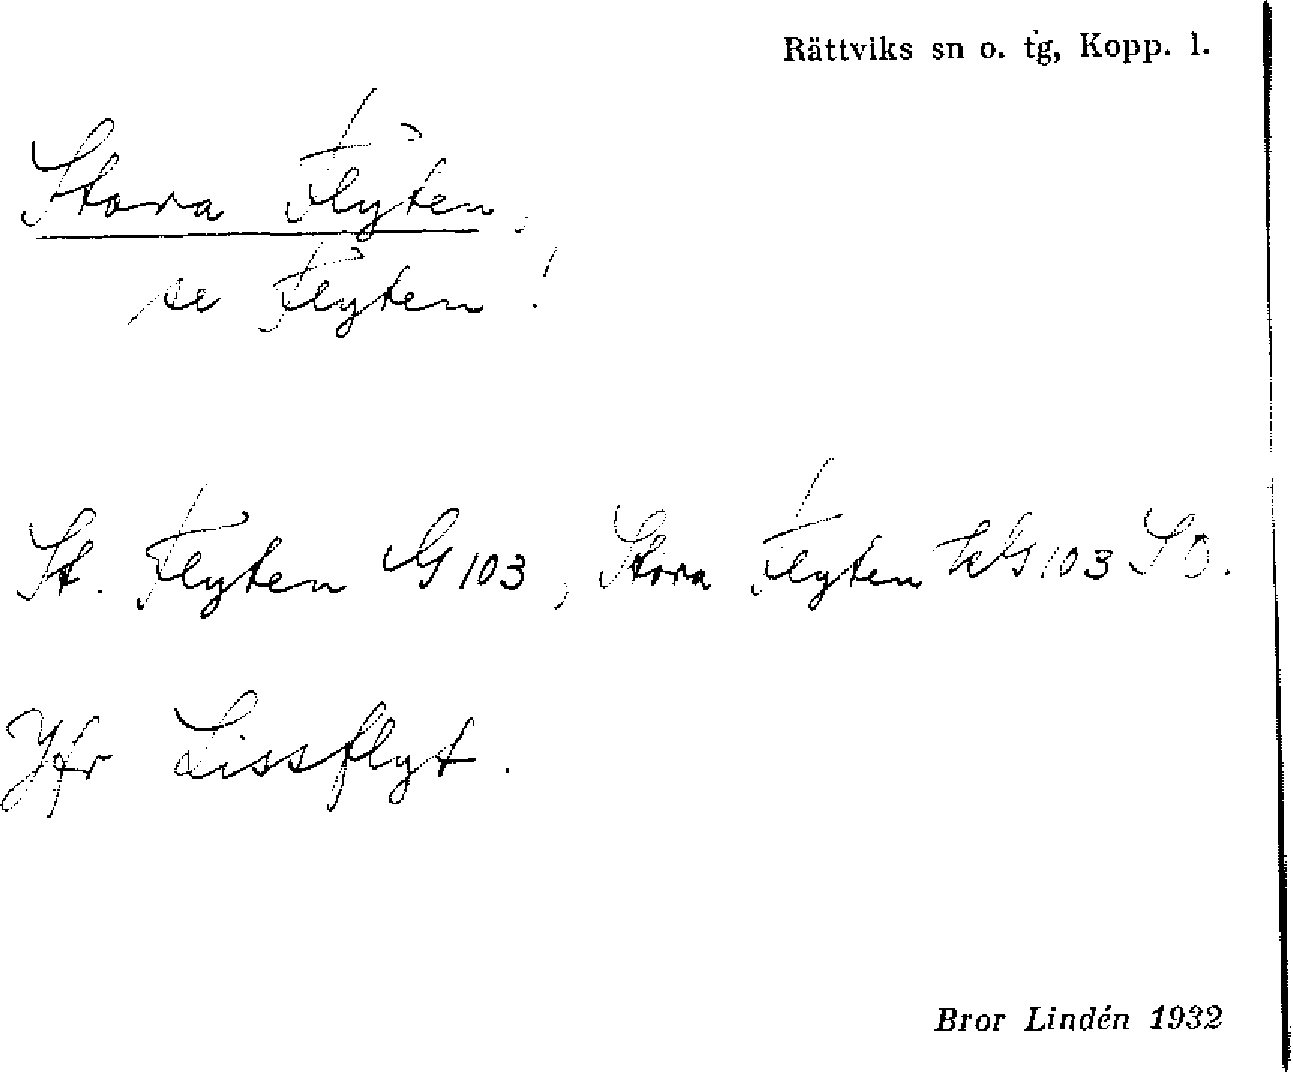 Rättviks sn o. tg, Kopp. l.
Stora Flyten,
se Flyten!
St. Flyten G 103, Stora Flyten 103 SO.
Jfr Lissflyt.
Bror Lindén 1932